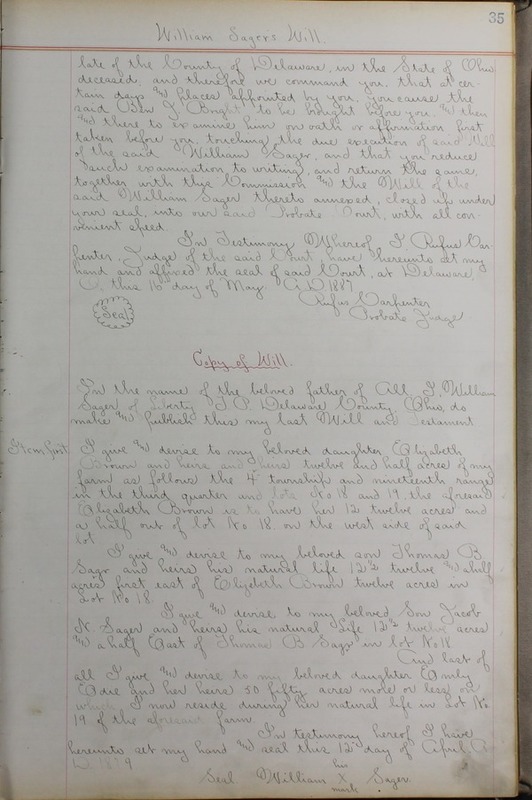 35
William Sagers Will.
late of the County of Delaware, in the State of Ohio
deceased, and therefore we command you, that at cer-
tain days and places appointed by you, you cause the
said Ben J. Bright to be brought before you, and then
and there to examine him on oath or affirmation first
taken before you, touching the due execution of said Will
of the said William Sager, and that you reduce
such examination to writing, and return the same,
together with this Commission and the Will of the
said William Sager thereto annexed, closed up under
your seal, into our said Probate Court, with all con-
venient speed.
In Testimony Whereof, I, Rufus Car-
penter, Judge of the said Court, have hereunto set my
hand and affixed the seal of said Court, at Delaware,
O, this 16th day of May A.D. 1887
Rufus Carpenter
Seal
Probate Judge.
Copy of Will.
In the name of the beloved father of All I, William
Sager of Liberty T.P. Delaware County Ohio, do
make and publish this my last Will and Testament
Item first I give and devise to my beloved daughter Elizabeth
Brown and heirs and heirs twelve and half acres of my
farm as follows the 4 township and nineteenth range
in the third quarter and lots No 18 and 19 the aforesaid
Elizabeth Brown is to have her 12 twelve acres and
a half out of lot No 18. on the west side of said
lot
I give and devise to my beloved son Thomas B
Sagr and heirs his natural life 12½ twelve and a half
acres first east of Elizebeth Brown twelve acres in
Lot No 18.
I give and devise to my beloved Son Jacob
N. Sager and heirs his natural Life 12½ twelve acres
and a half East of Thomas B Sagr in lot No 18
And last of
all I give and devise to my beloved daughter Emly
Edie and her heirs 50 fifty acres more or less on
which I now reside during her natural life in Lot No
19 of the aforesaid farm.
In testimony hereof I have
hereunto set my hand and seal this 12 day of April A
D. 1879
his
Seal William X Sager.
mark